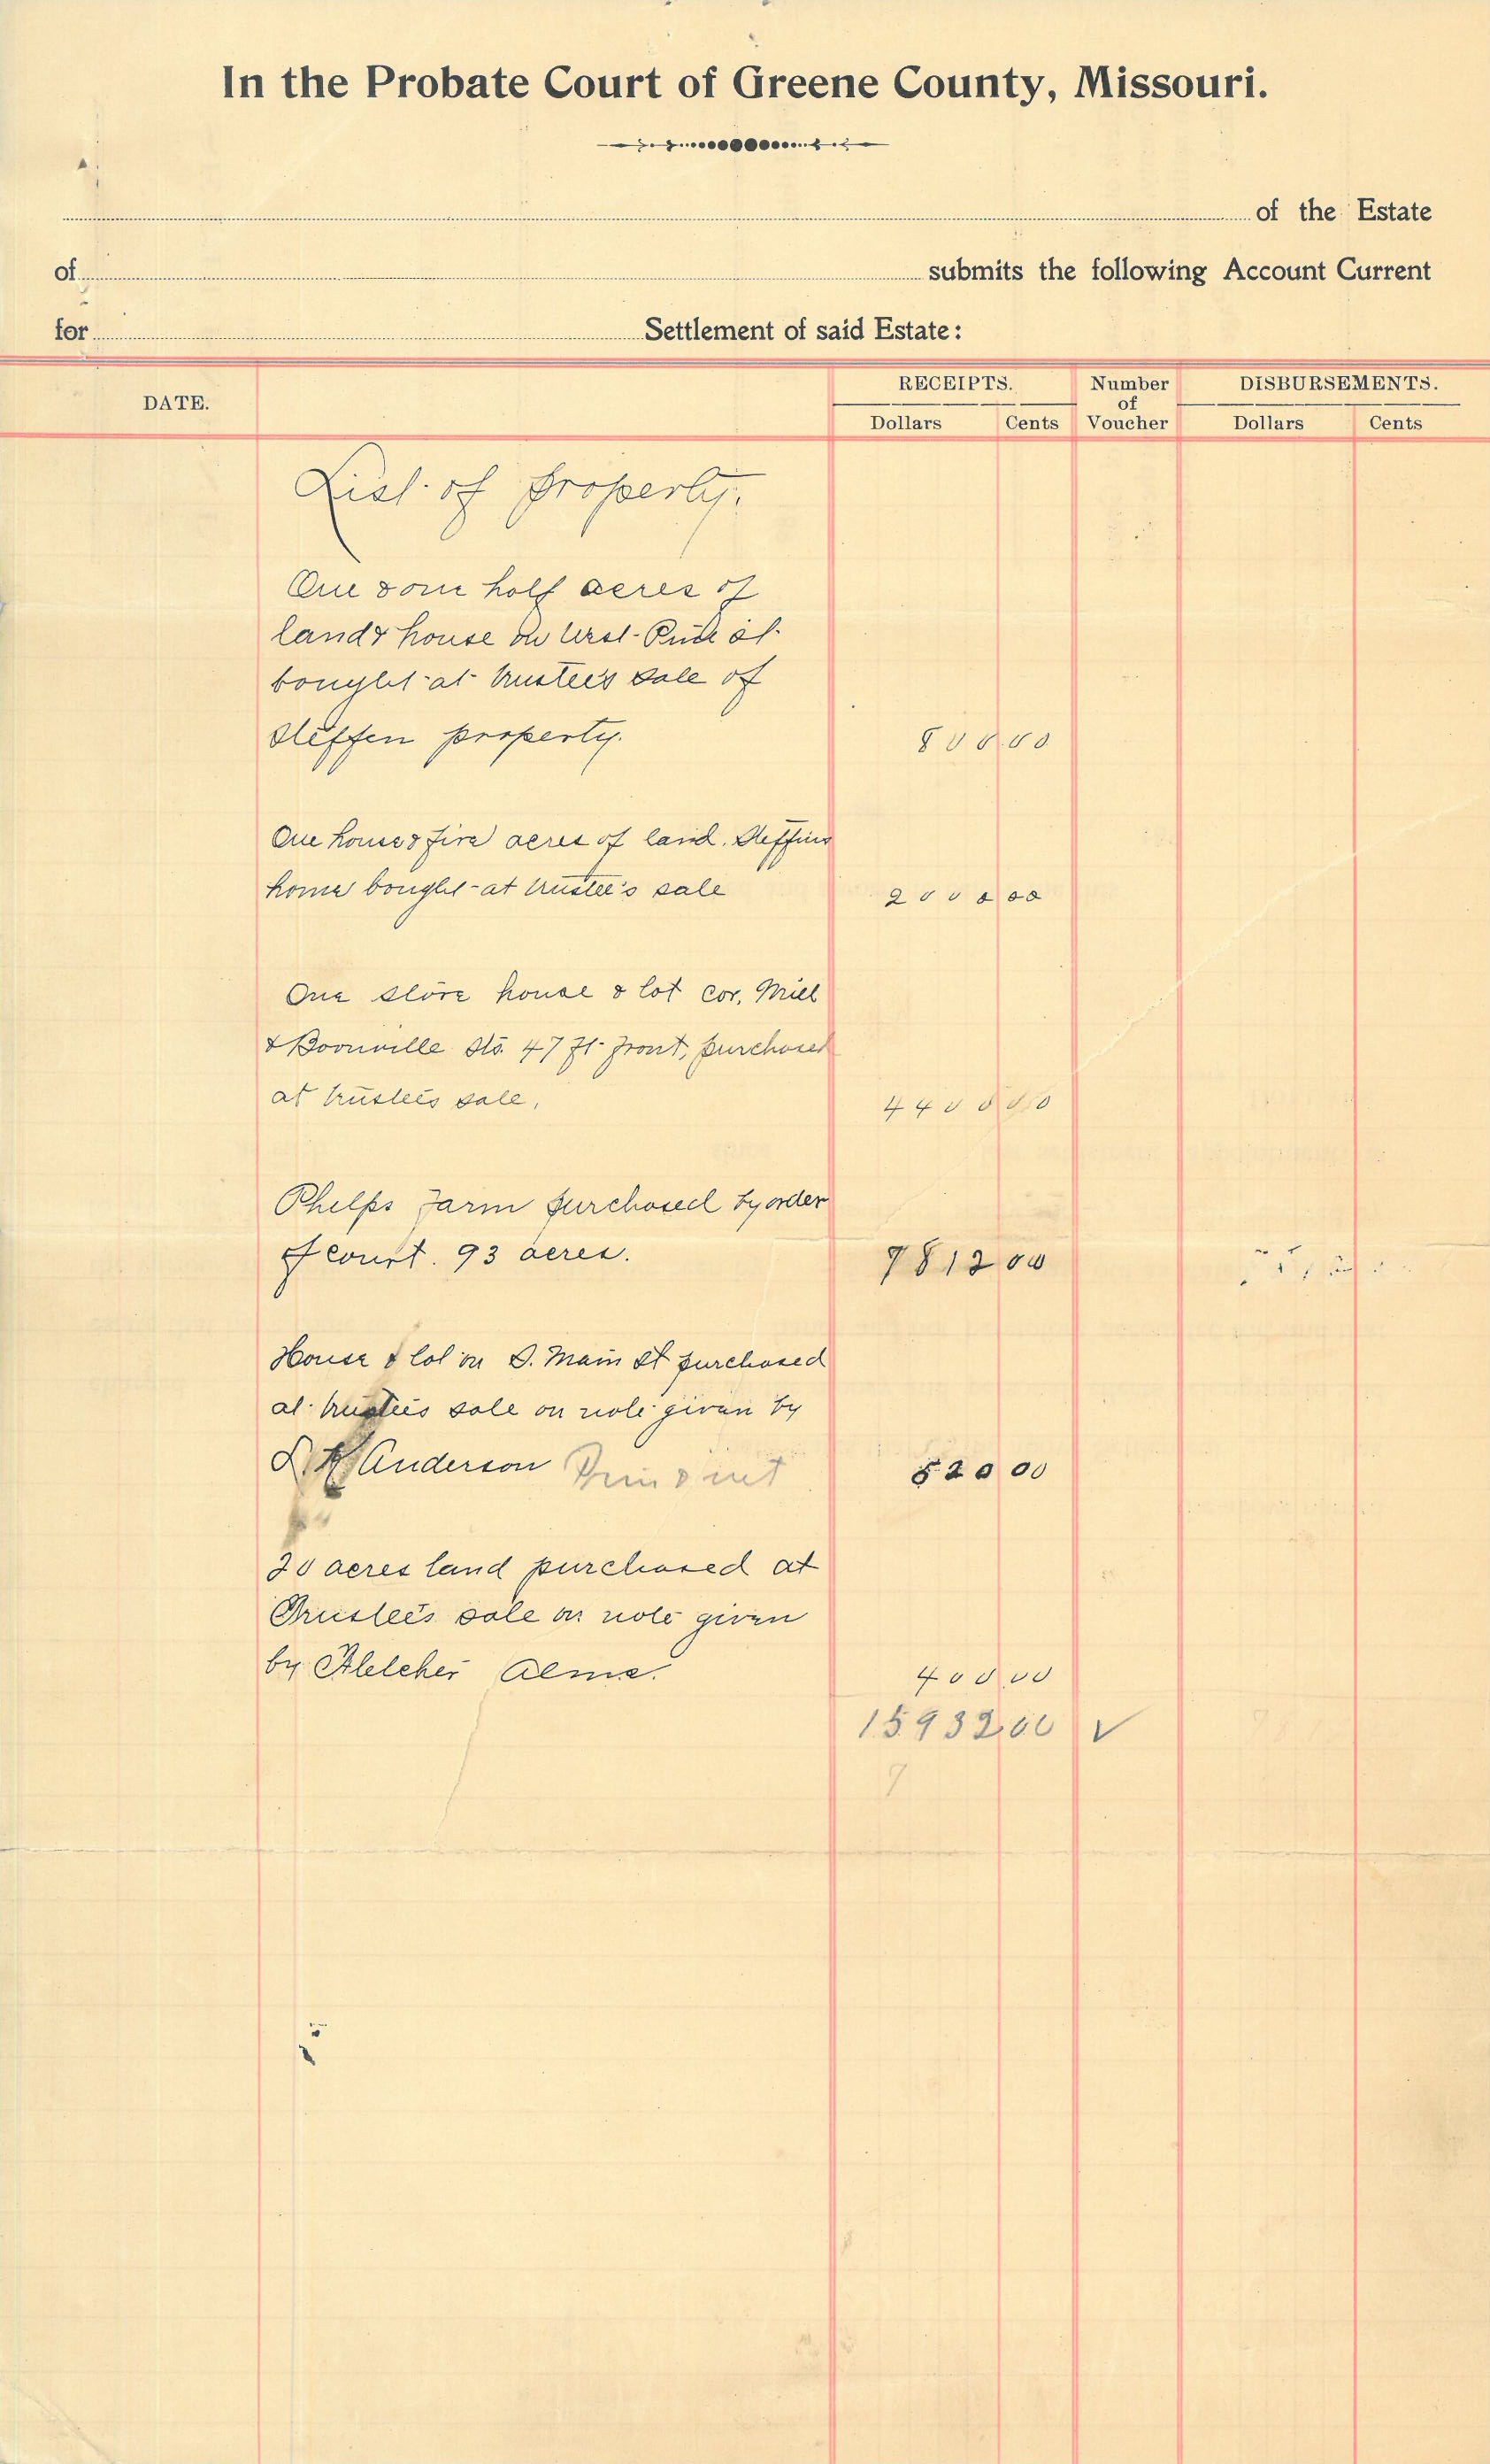 In the Probate Court of Greene County, Missouri.
of the Estate
of submits the following Account Current
for Settlement of said Estate:
DATE. RECEIPTS. Number of Voucher DISBURSEMENTS.
Dollars Cents Dollars Cents
List of property.
One & one half acres of
land & house on West
bought at trustee's sale of
Steffen property. 800.00
One house & five acres of land. Steffins
home bought at trustee's sale 2000 00
One store house & lot cor. Mill
& Boonville Sts. 47 ft front, purchased
at trustees sale. 4400 00
Phelps farm purchased by order
of court. 93 acres. 7812 00
House & lot on S. Main St purchased
at trustees sale on note given by
Anderson Prin & int 520 00
20 acres land purchased at
Trustee's sale on note given
by 400.00
15932 00 √
7